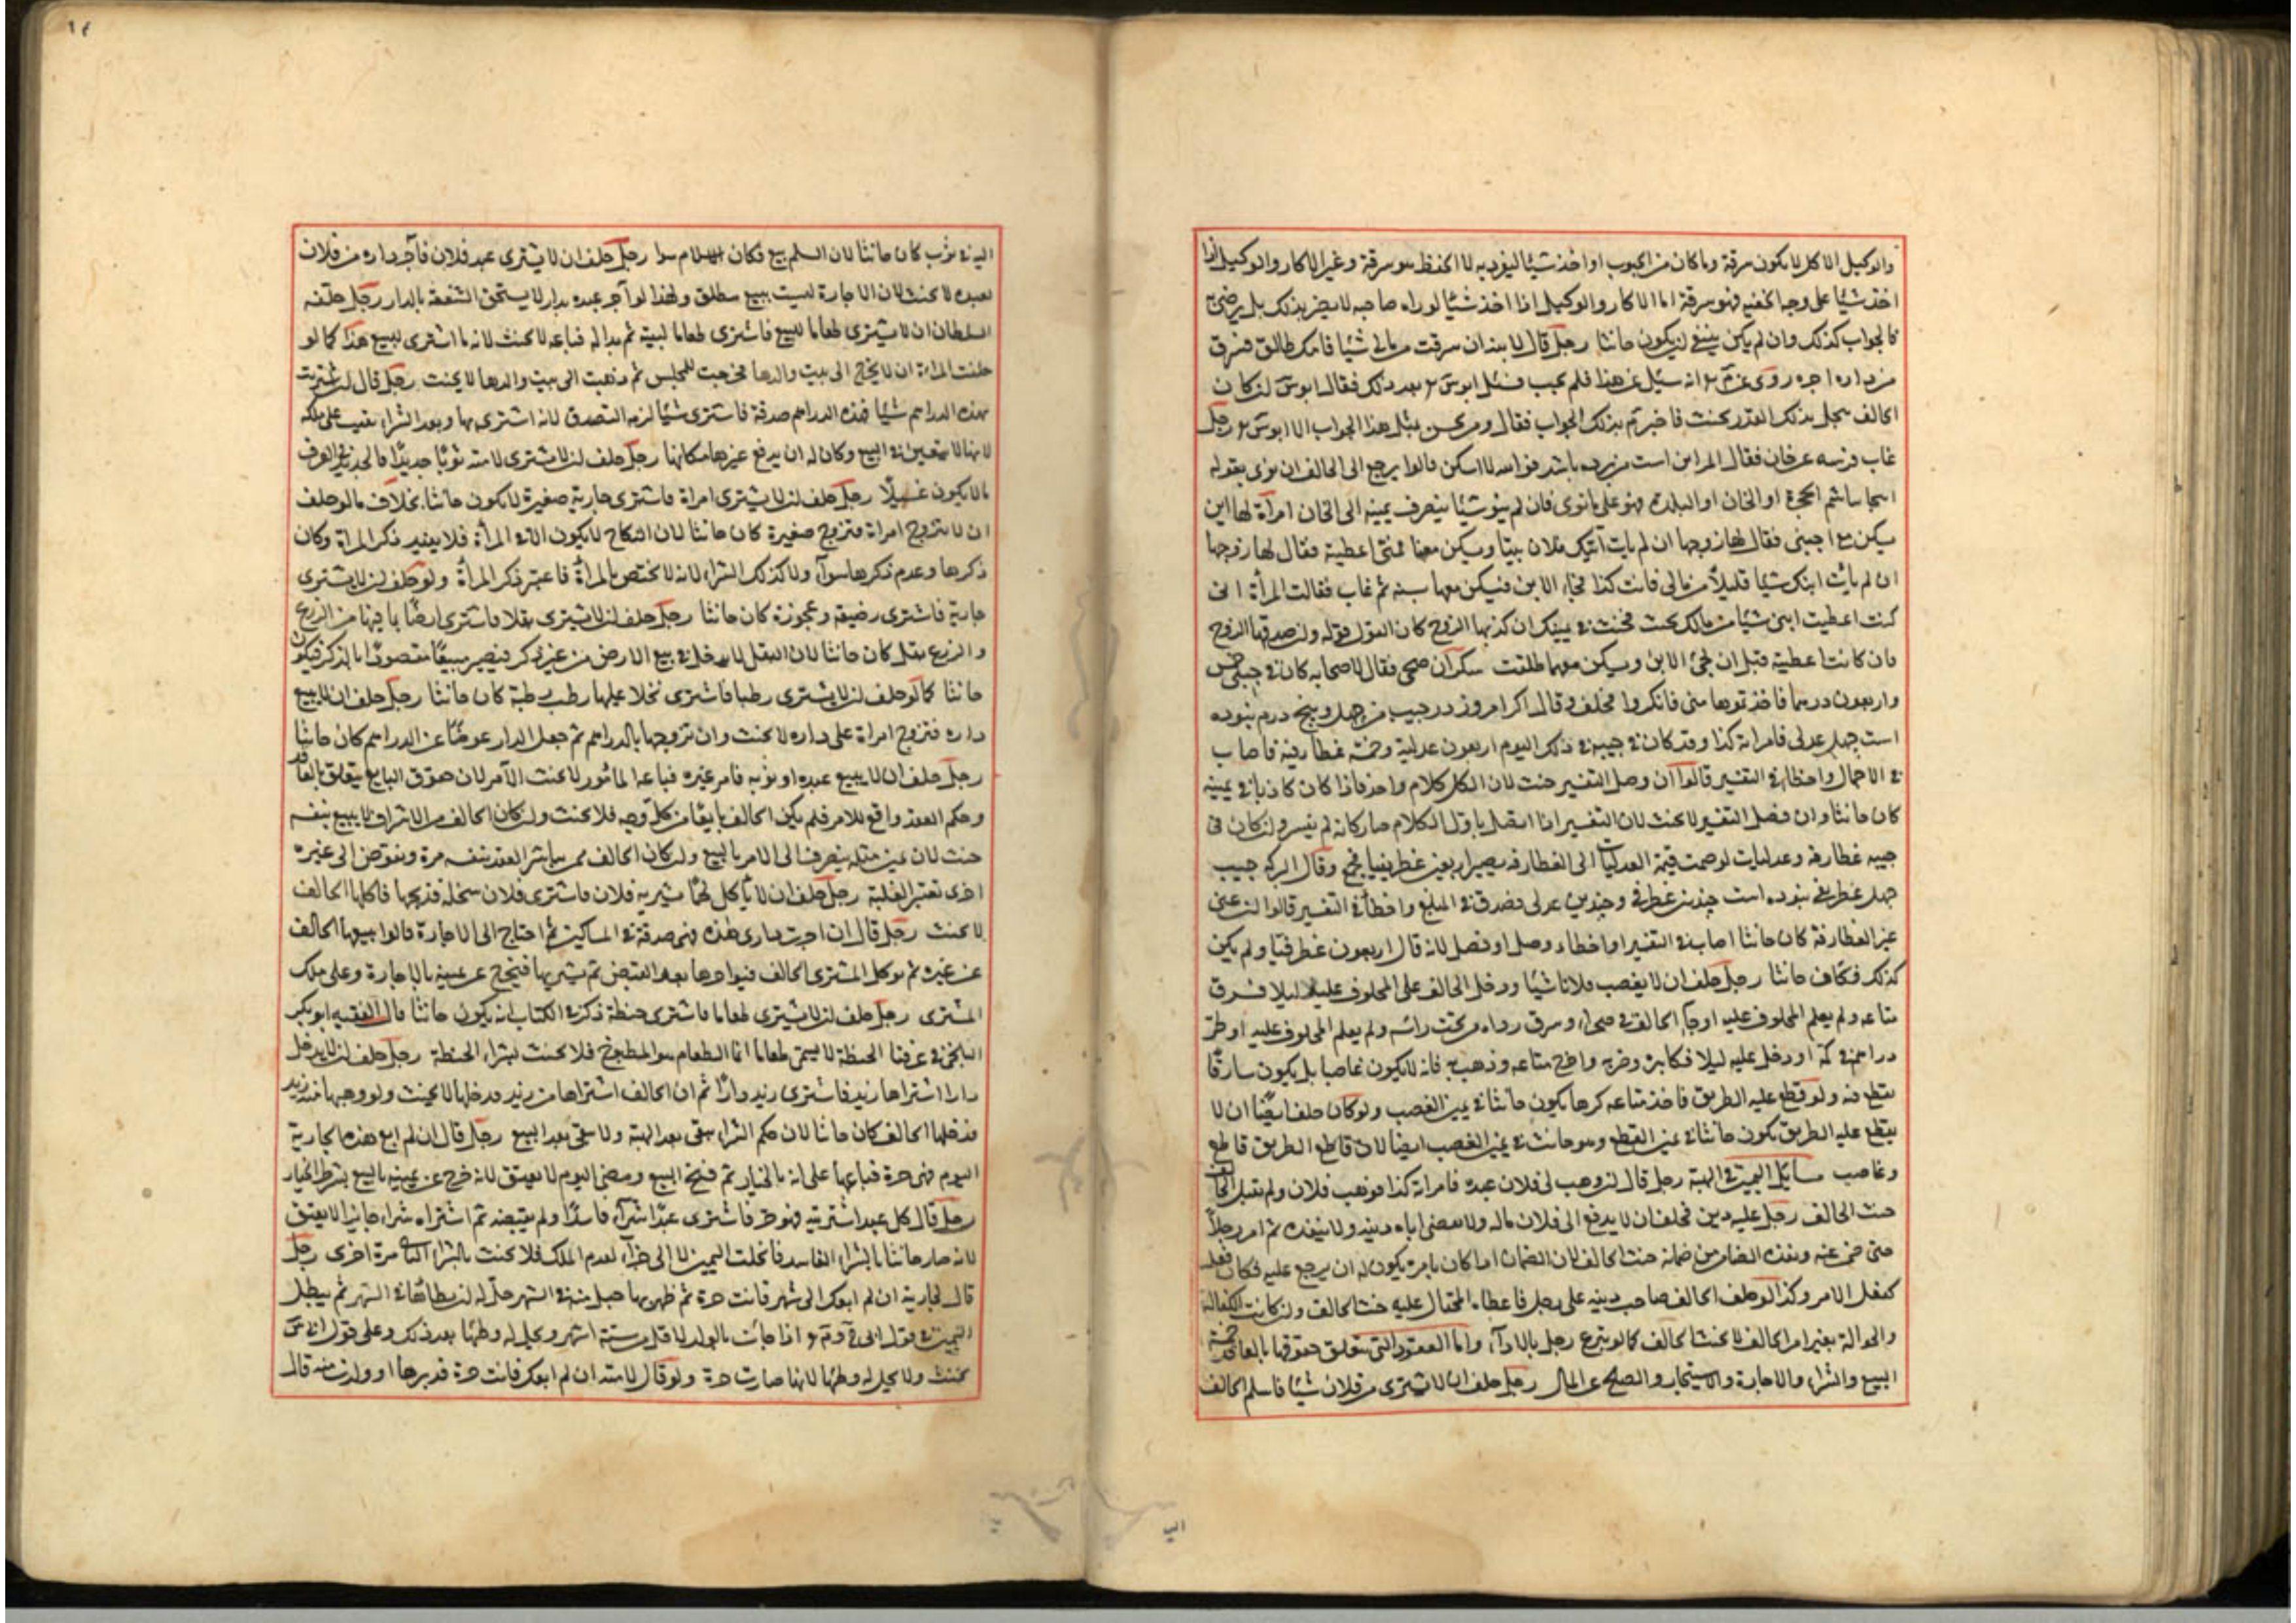 والوكيل الاكل لا يكون سرقة وما كان من الحبوب او اخذ شيئا ليفوز به لا الحفظ هو سرقة وغير الاكار والوكيل اذا
اخذ شيئا على وجه الخفية فهو سرقة اما الاكار والوكيل اذا اخذ شيئا لو راه صاحبه لا يضر بذلك بل يرضى
فالجواب كذلك وان لم يكن ينبغي ان يكون حانثا رجل قال لا ان سرقت من مالي شيئا فانك طالق فسرق
من داره اجره روى عن م انه سئل عن هذا فلم يجب فسئل ابو س بعد ذلك فقال ابو س ان كان
الحالف يحل بذلك القدر يحنث فاخبر م بذلك الجواب فقال ومن يحسن مثل هذا الجواب الا ابو س رجل
غاب فرسه عن خان فقال اكر اين است من برده باشد فوالله لا اسكن قالوا يرجع الى الحالف ان نوى بقوله
اينجا باشم الحجرة او الخان او البلدة فهو على ما نوى فان لم ينو شيئا ينصرف يمينه الى الخان امرأة لها ابن
يسكن مع اجنبي فقال لها زوجها ان لم يأت ابنك فلان بيتنا ويسكن معنا فمتى اعطيته فقال لها زوجها
ان لم يأت ابنك شيئا قليلا من مالي فانت كذا فجاء الابن فيسكن معها سنة ثم غاب فقالت المرأة اني
كنت اعطيت ابني شيئا من مالك بحيث فحنثت في يمينك ان كذبها الزوج كان القول قوله وان صدقها الزوج
فان كانت اعطيته قبل ان يجئ الابن ويسكن معهما طلقت سكران صحى فقال لاصحابه كان في جيبي خمس
واربعون درهما فاخذتموها مني فانكروا فحلف وقال اكر امروز در جيب من چهل و پنج درم نبوده
است چهل عدلى فامراته كذا وقد كان في جيبه في ذلك اليوم اربعون عدلية وخمسة غطارفة فاصاب
في الاجمال واخطا في التفسير قالوا ان وصل التفسير حنث لان الكل كلام واحد فاذا كان كاذبا في يمينه
كان حانثا وان فصل التفسير لا يحنث لان التفسير اذا انفصل باول الكلام صار كانه لم يفسر وان كان في
جيبه غطارفة وعدليات لو ضمت قيمة العدليات الى الغطارفة يصير اربعين غطريفيا فحج وقال اكر در جيب
چهل غطريفي نبوده است چندين غطريفي و چندين عدلى فصدق في المبلغ واخطأ في التفسير قالوا ان عنى
عين الغطارفة كان حانثا اصاب في التفسير او اخطاء وصل او فصل لانه قال اربعون غطريفيا ولم يكن
كذلك فكان حانثا رجل حلف ان لا يغصب فلانا شيئا ودخل الحالف على المحلوف عليه ليلا فسرق
متاعه ولم يعلم المحلوف عليه او جاء الحالف في صحراء وسرق رداءه من تحت رأسه ولم يعلم المحلوف عليه او طر
دراهم في كمه او دخل عليه ليلا فكابره وضربه واخرج متاعه وذهب به فانه لا يكون غاصبا بل يكون سارقا
يقطع فيه ولو قطع عليه الطريق فاخذ متاعه كرها يكون حانثا في يمين الغصب ولو كان حلف ايضا ان لا
يقطع عليه الطريق يكون حانثا في يمين القطع وهو حانث في يمين الغصب ايضا لان قاطع الطريق قاطع
وغاصب مسائل اليمين في الهبة رجل قال ان وهب لي فلان عبده فامراته كذا فوهب فلان ولم يقبل الحالف
حنث الحالف رجل عليه دين فحلف ان لا يدفع الى فلان ماله ولا يقضي اياه دينه ولا ينفذه ثم امر رجلا
حتى ضمن عنه ونفذه الضامن ضمانه حنث الحالف لان الضمان اذا كان بامره يكون له ان يرجع عليه فكان فعله
كفعل الامر وكذا لو حلف الحالف صاحب دينه على رجل فاعطاه المحتال عليه حنث الحالف وان كانت الكفالة
والحوالة بغير امر الحالف لا يحنث الحالف كما لو تبرع رجل بالاداء واما العقود التي يتعلق حقوقها بالعاقد خمسة
البيع والشراء والاجارة والاستيجار والصلح عن المال رجل حلف ان لا يشتري من فلان شيئا فاسلم الحالف
الي
اليه في ثوب كان حانثا لان السلم بيع فكان الاسلام سوا رجل حلف ان لا يشتري عبد فلان فآجر داره من فلان
بعبده لا يحنث لان الاجارة ليست ببيع مطلق ولهذا لو آجر عبده بدار لا يستحق الشفعة بالدار رجل حلفه
السلطان ان لا يشتري طعاما للبيع فاشترى طعاما لبيته ثم بدا له فباعه لا يحنث لانه ما اشترى للبيع هذا كما لو
حلفت المراة ان لا يخرج الى بيت والدها فخرجت للمجلس ثم ذهبت الى بيت والدها لا يحنث رجل قال ان اشتريت
بهذه الدراهم شيئا فهذه الدراهم صدقة فاشترى شيئا لزمه التصدق لانه اشترى بها وبعد الشراء بقيت على ملكه
لانها لا يتعين في البيع وكان له ان يدفع غيرها مكانها رجل حلف ان لا يشتري لامته ثوبا جديدا فالجديد في العرف
ما لا يكون غسيلا رجل حلف ان لا يشتري امراة فاشترى جارية صغيرة لا يكون حانثا بخلاف ما لو حلف
ان لا يتزوج امراة فتزوج صغيرة كان حانثا لان النكاح لا يكون الا في المرأة فلا يفيد ذكر المراة وكان
ذكرها وعدم ذكرها سوآء ولا كذلك الشراء لانه لا يختص بالمرأة فاعتبر ذكر المرأة ولو حلف ان لا يشتري
جارية فاشترى رضيعة وعجوزة كان حانثا رجل حلف ان لا يشتري بقلا فاشترى ارضا بما فيها من الزرع
والزرع بقل كان حانثا لان البقل لا يدخل في بيع الارض من غير ذكر فيصير مبيعا مقصودا بالذكر فيكون
حانثا كما لو حلف ان لا يشتري رطبا فاشترى نخلا عليها رطب رطبة كان حانثا رجل حلف ان لا يبيع
داره فتزوج امراة على داره لا يحنث وان تزوجها بالدراهم ثم جعل الدار عوضا عن الدراهم كان حانثا
رجل حلف ان لا يبيع عبده او ثوبه فامر غيره فباعه المأمور لا يحنث الآمر لان حقوق البايع يتعلق بالعاقد
وحكم العقد واقع للامر فلم يكن الحالف بايعا من كل وجه فلا يحنث وان كان الحالف من الاشراف لا يبيع بنفسه
حنث لان يمين مثله ينصرف الى الامر بالبيع وان كان الحالف ممن يباشر العقد بنفسه مرة ويفوض الى غيره
اخرى تعتبر الغلبة رجل حلف ان لا يأكل لحما يشتريه فلان فاشترى فلان سخلة فذبحها فاكلها الحالف
لا يحنث رجل قال ان اجرت داري هذه فهي صدقة في المساكين ثم احتاج الى الاجارة قالوا يبيعها الحالف
من غيره ثم يوكل المشتري الحالف فيواجرها بعد القبض ثم يشتريها فيخرج عن يمينه بالاجارة وعلى ملك
المشتري رجل حلف ان لا يشتري طعاما فاشترى حنطة ذكر في الكتاب انه يكون حانثا قال الفقيه ابو بكر
البلخي في عرفنا الحنطة لا يسمى طعاما انما الطعام هو المطبوخ فلا يحنث بشراء الحنطة رجل حلف ان لا يدخل
دارا اشتراها زيد فاشترى زيد دارا ثم ان الحالف اشتراها من زيد فدخلها لا يحنث ولو وهبها منه زيد
فدخلها الحالف كان حانثا لان حكم الشراء يبقى بعد الهبة ولا يبقى بعد البيع رجل قال ان لم ابع هذه الجارية
اليوم فهي حرة فباعها على انه بالخيار ثم فسخ البيع ومضى اليوم لا يعتق لانه خرج عن يمينه بالبيع بشرط الخيار
رجل قال كل عبد اشتريته فهو حر فاشترى عبدا شرآء فاسدا ولم يقبضه ثم اشتراه شراء جائزا لا يعتق
لانه صار حانثا بالشراء الفاسد فانحلت اليمين لا الى جزآء لعدم الملك فلا يحنث بالشراء الثاني مرة اخرى رجل
قال لجارية ان لم ابعك الى شهر فانت حرة ثم ظهر بها حبل منه في الشهر حل له ان يطأها في الشهر ثم يبطل
اليمين في قول ابي ح وم اذا جاءت بالولد لاقل من ستة اشهر ويحل له وطئها بعد ذلك وعلى قول ابي س
يحنث ولا يحل له وطئها لانها صارت حرة ولو قال لامته ان لم ابعك فانت حرة فدبرها او ولدت منه قال